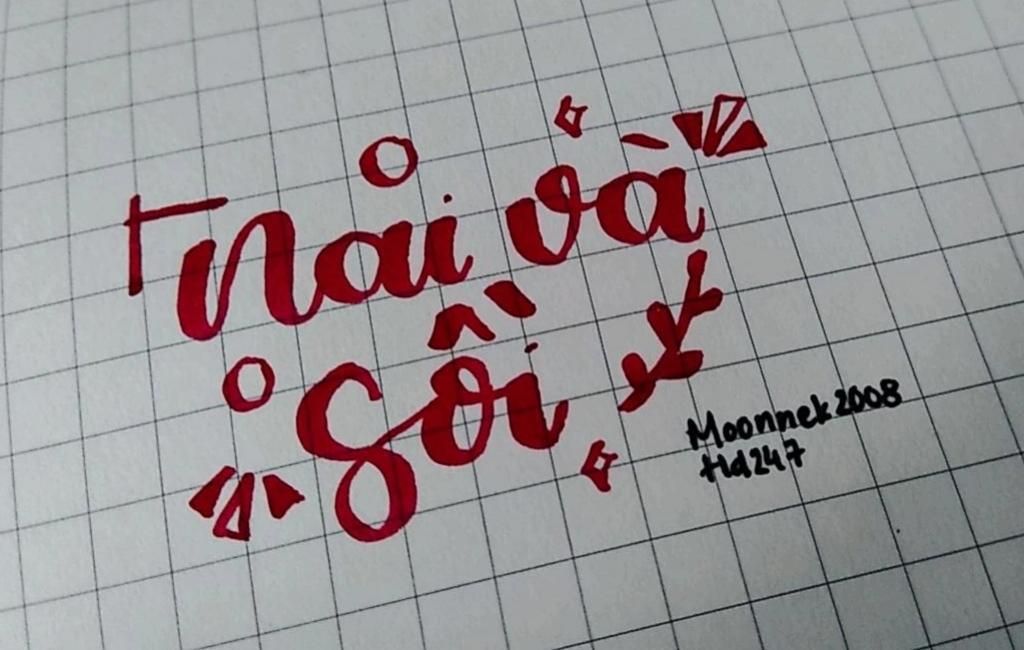 Nai và
Sồi
Moonnek2008
Hd247